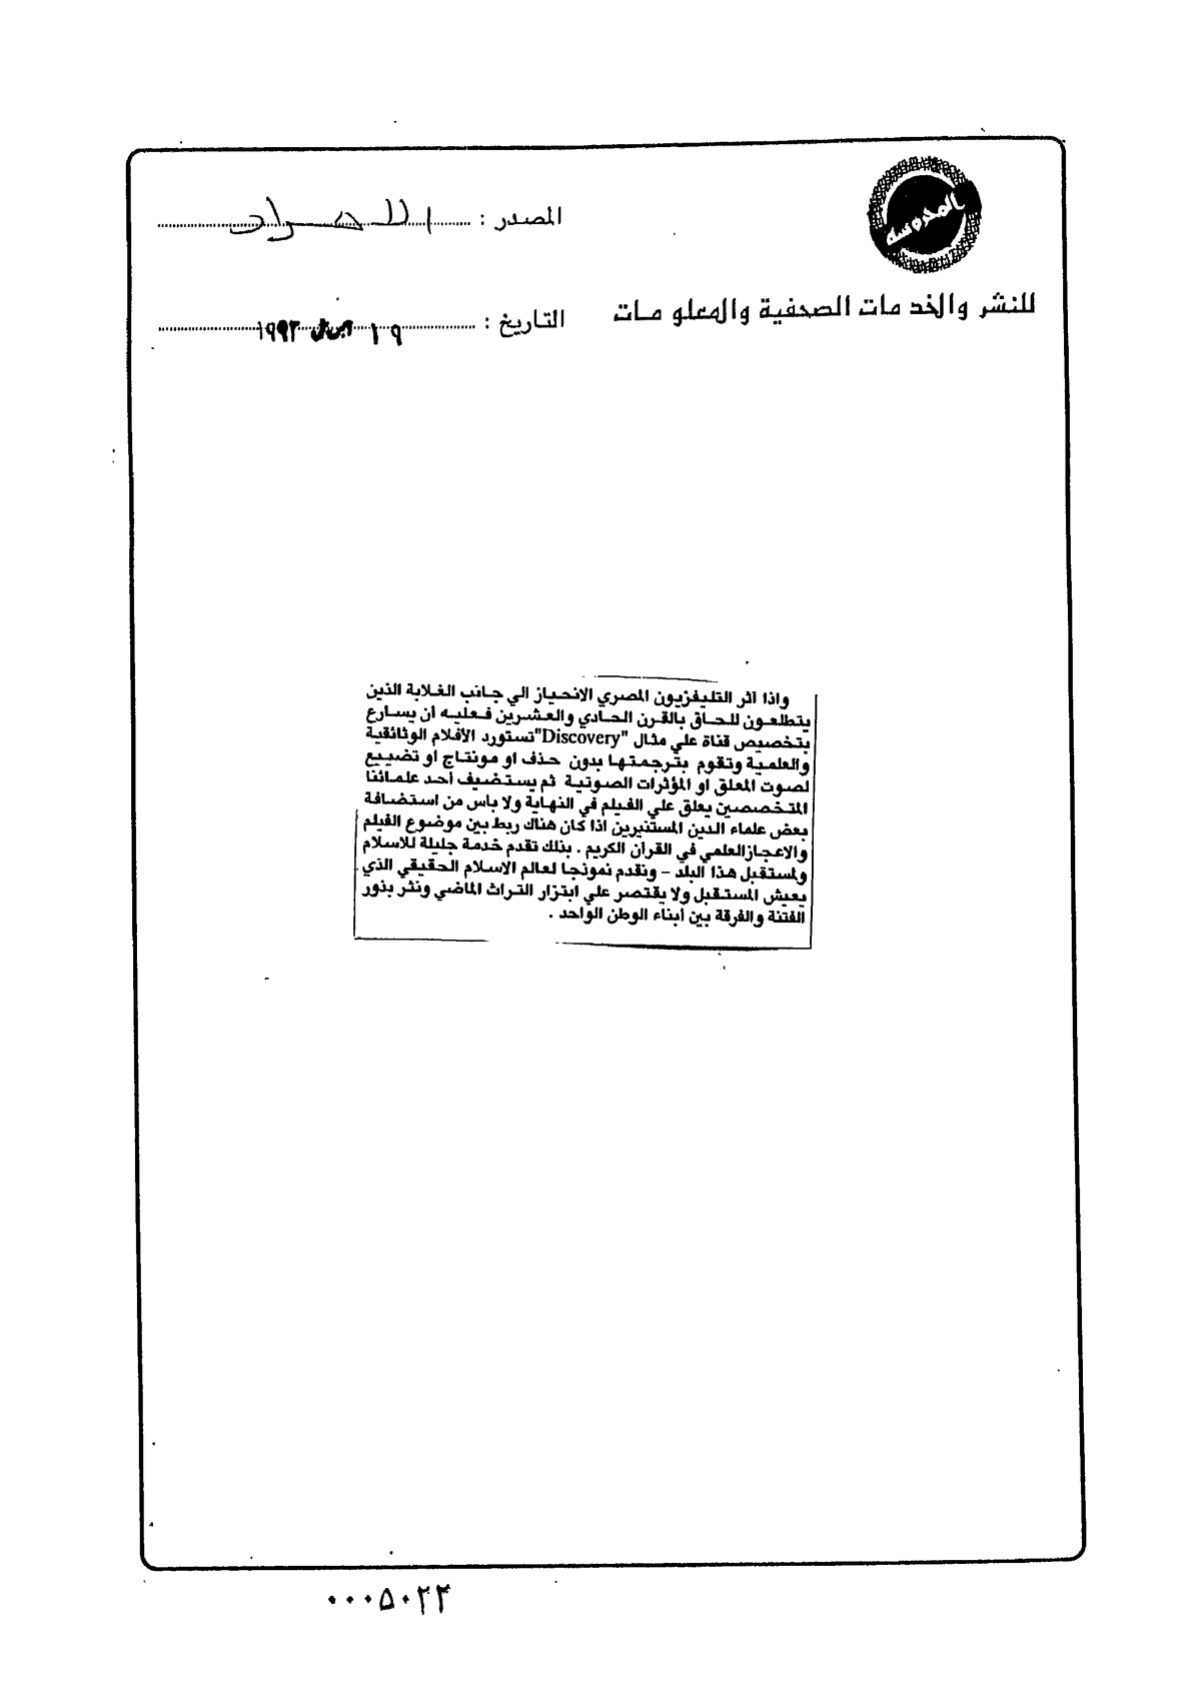 المحروسة
المصدر :
للنشر والخدمات الصحفية والمعلومات
التاريخ : ١٩ ابريل ١٩٩٣
واذا اثر التليفزيون المصري الانحياز الي جانب الغلابة الذين
يتطلعون للحاق بالقرن الحادي والعشرين فعليه ان يسارع
بتخصيص قناة علي مثال "Discovery" تستورد الأفلام الوثائقية
والعلمية وتقوم بترجمتها بدون حذف او مونتاج او تضييع
لصوت المعلق او المؤثرات الصوتية ثم يستضيف أحد علمائنا
المتخصصين يعلق علي الفيلم في النهاية ولا باس من استضافة
بعض علماء الدين المستنيرين اذا كان هناك ربط بين موضوع الفيلم
والاعجاز العلمي في القران الكريم . بذلك تقدم خدمة جليلة للاسلام
ولمستقبل هذا البلد – ونقدم نموذجا لعالم الاسلام الحقيقي الذي
يعيش المستقبل ولا يقتصر علي ابتزار التراث الماضي ونثر بذور
الفتنة والفرقة بين أبناء الوطن الواحد .
٠٠٠٥٠٢٣